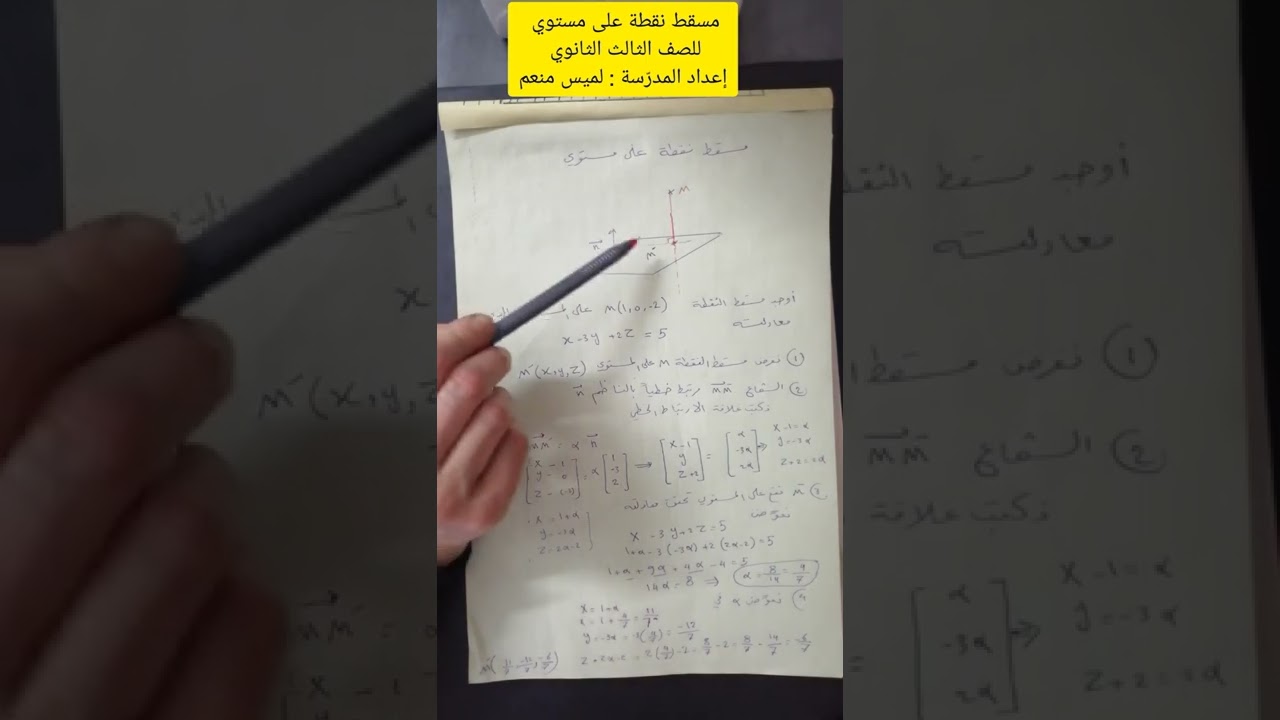 مسقط نقطة على مستوي
للصف الثالث الثانوي
إعداد المدرّسة : لميس منعم
مسقط نقطة على مستوي
M
n
M'
أوجد مسقط النقطة M(1,0,-2) على
معادلته
x -3y +2z = 5
① نفرض مسقط النقطة M على المستوي M'(x,y,z)
② الشعاع MM' مرتبط خطياً بالناظم n
نكتب علاقة الارتباط الخطي
MM' = α n
[x-1 y-0 z-(-2)] = α [1 -3 2] ⟹ [x-1 y z+2] = [α -3α 2α] ⟹ x-1=α y=-3α z+2=2α
x = 1+α
y = -3α
z = 2α-2
M' تقع على المستوي تحقق معادلته
نعوض
x -3y+2z=5
1+α-3(-3α)+2(2α-2)=5
1+α+9α+4α-4=5
14α=8 ⟹ α=8/14=4/7
نعوض α في
x=1+α
x=1+4/7=11/7
y=-3α=-3(4/7)=-12/7
z=2α-2=2(4/7)-2=8/7-2=8/7-14/7=-6/7
M'(11/7,-12/7,-6/7)